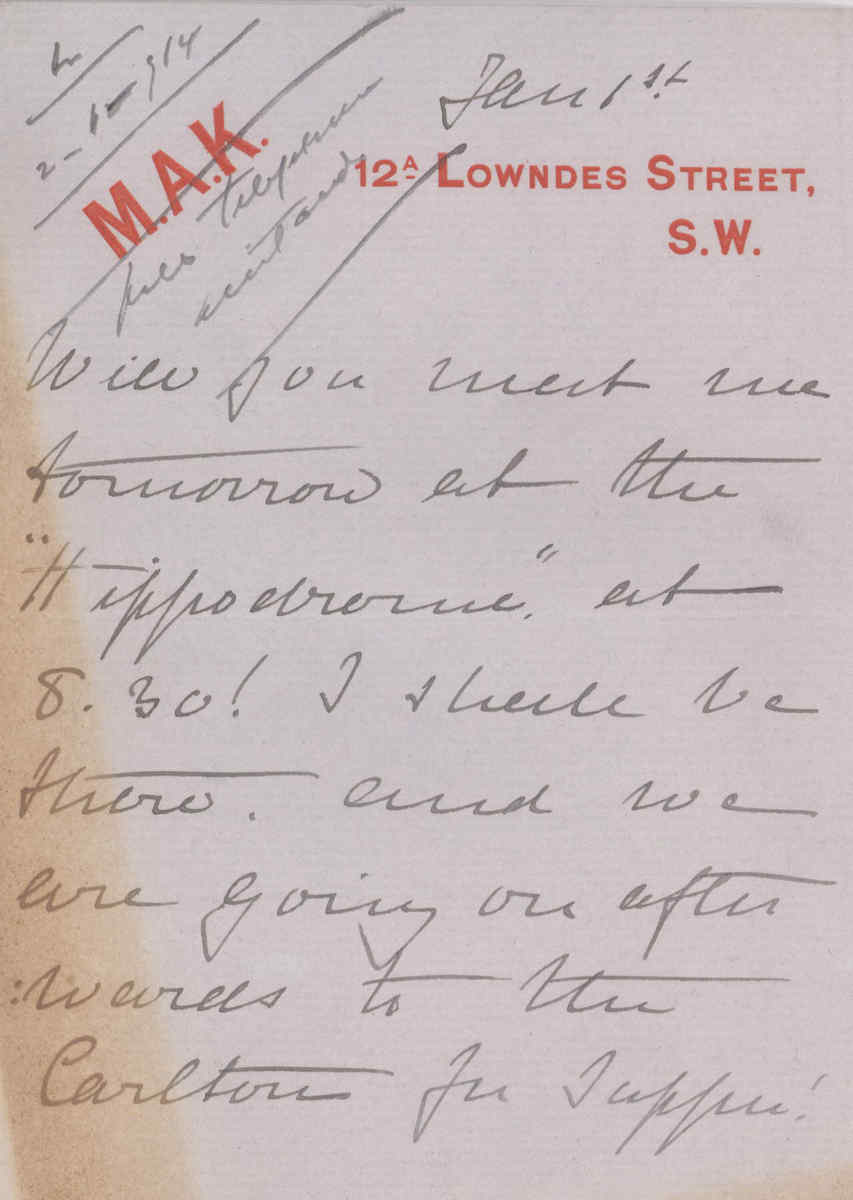 2-1-914
Jan 1st
M.A.K.
telephone
12A LOWNDES STREET,
S.W.
Will you meet me
tomorrow at the
"Hippodrome." at
8.30! I shall be
there. and we
are going on after
:wards to the
Carlton for Supper!